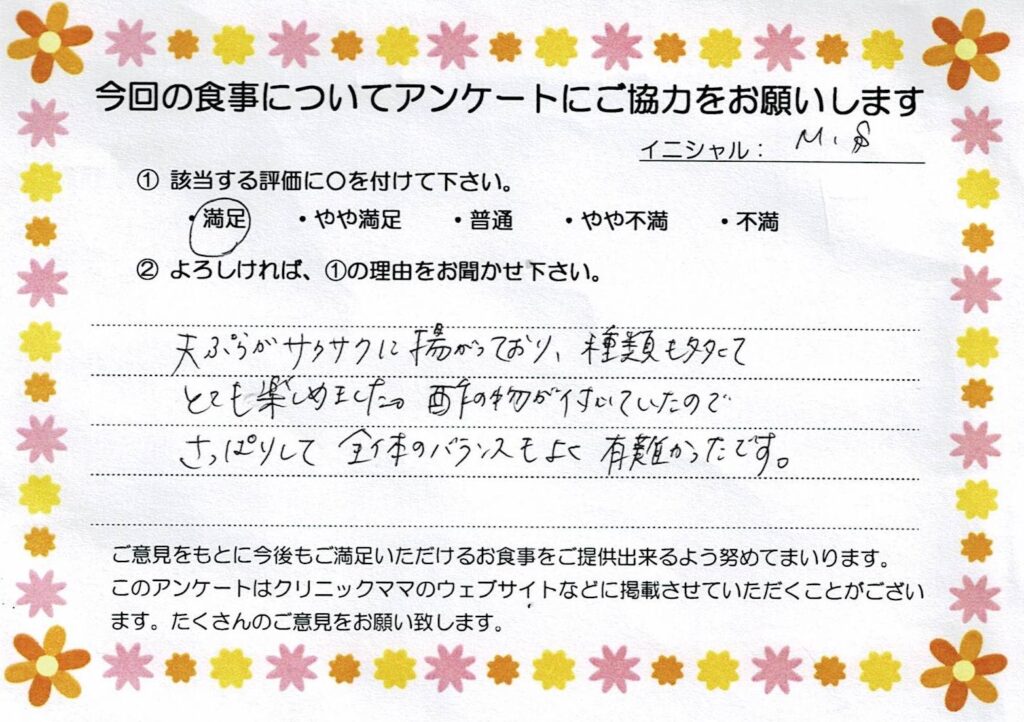 今回の食事についてアンケートにご協力をお願いします
イニシャル： M.S
① 該当する評価に〇を付けて下さい。
・満足 ・やや満足 ・普通 ・やや不満 ・不満
② よろしければ、①の理由をお聞かせ下さい。
天ぷらがサクサクに揚がっており、種類も多くて
とても楽しめました。酢の物が付いていたので
さっぱりして全体のバランスもよく有難かったです。
ご意見をもとに今後もご満足いただけるお食事をご提供出来るよう努めてまいります。
このアンケートはクリニックママのウェブサイトなどに掲載させていただくことがござい
ます。たくさんのご意見をお願い致します。